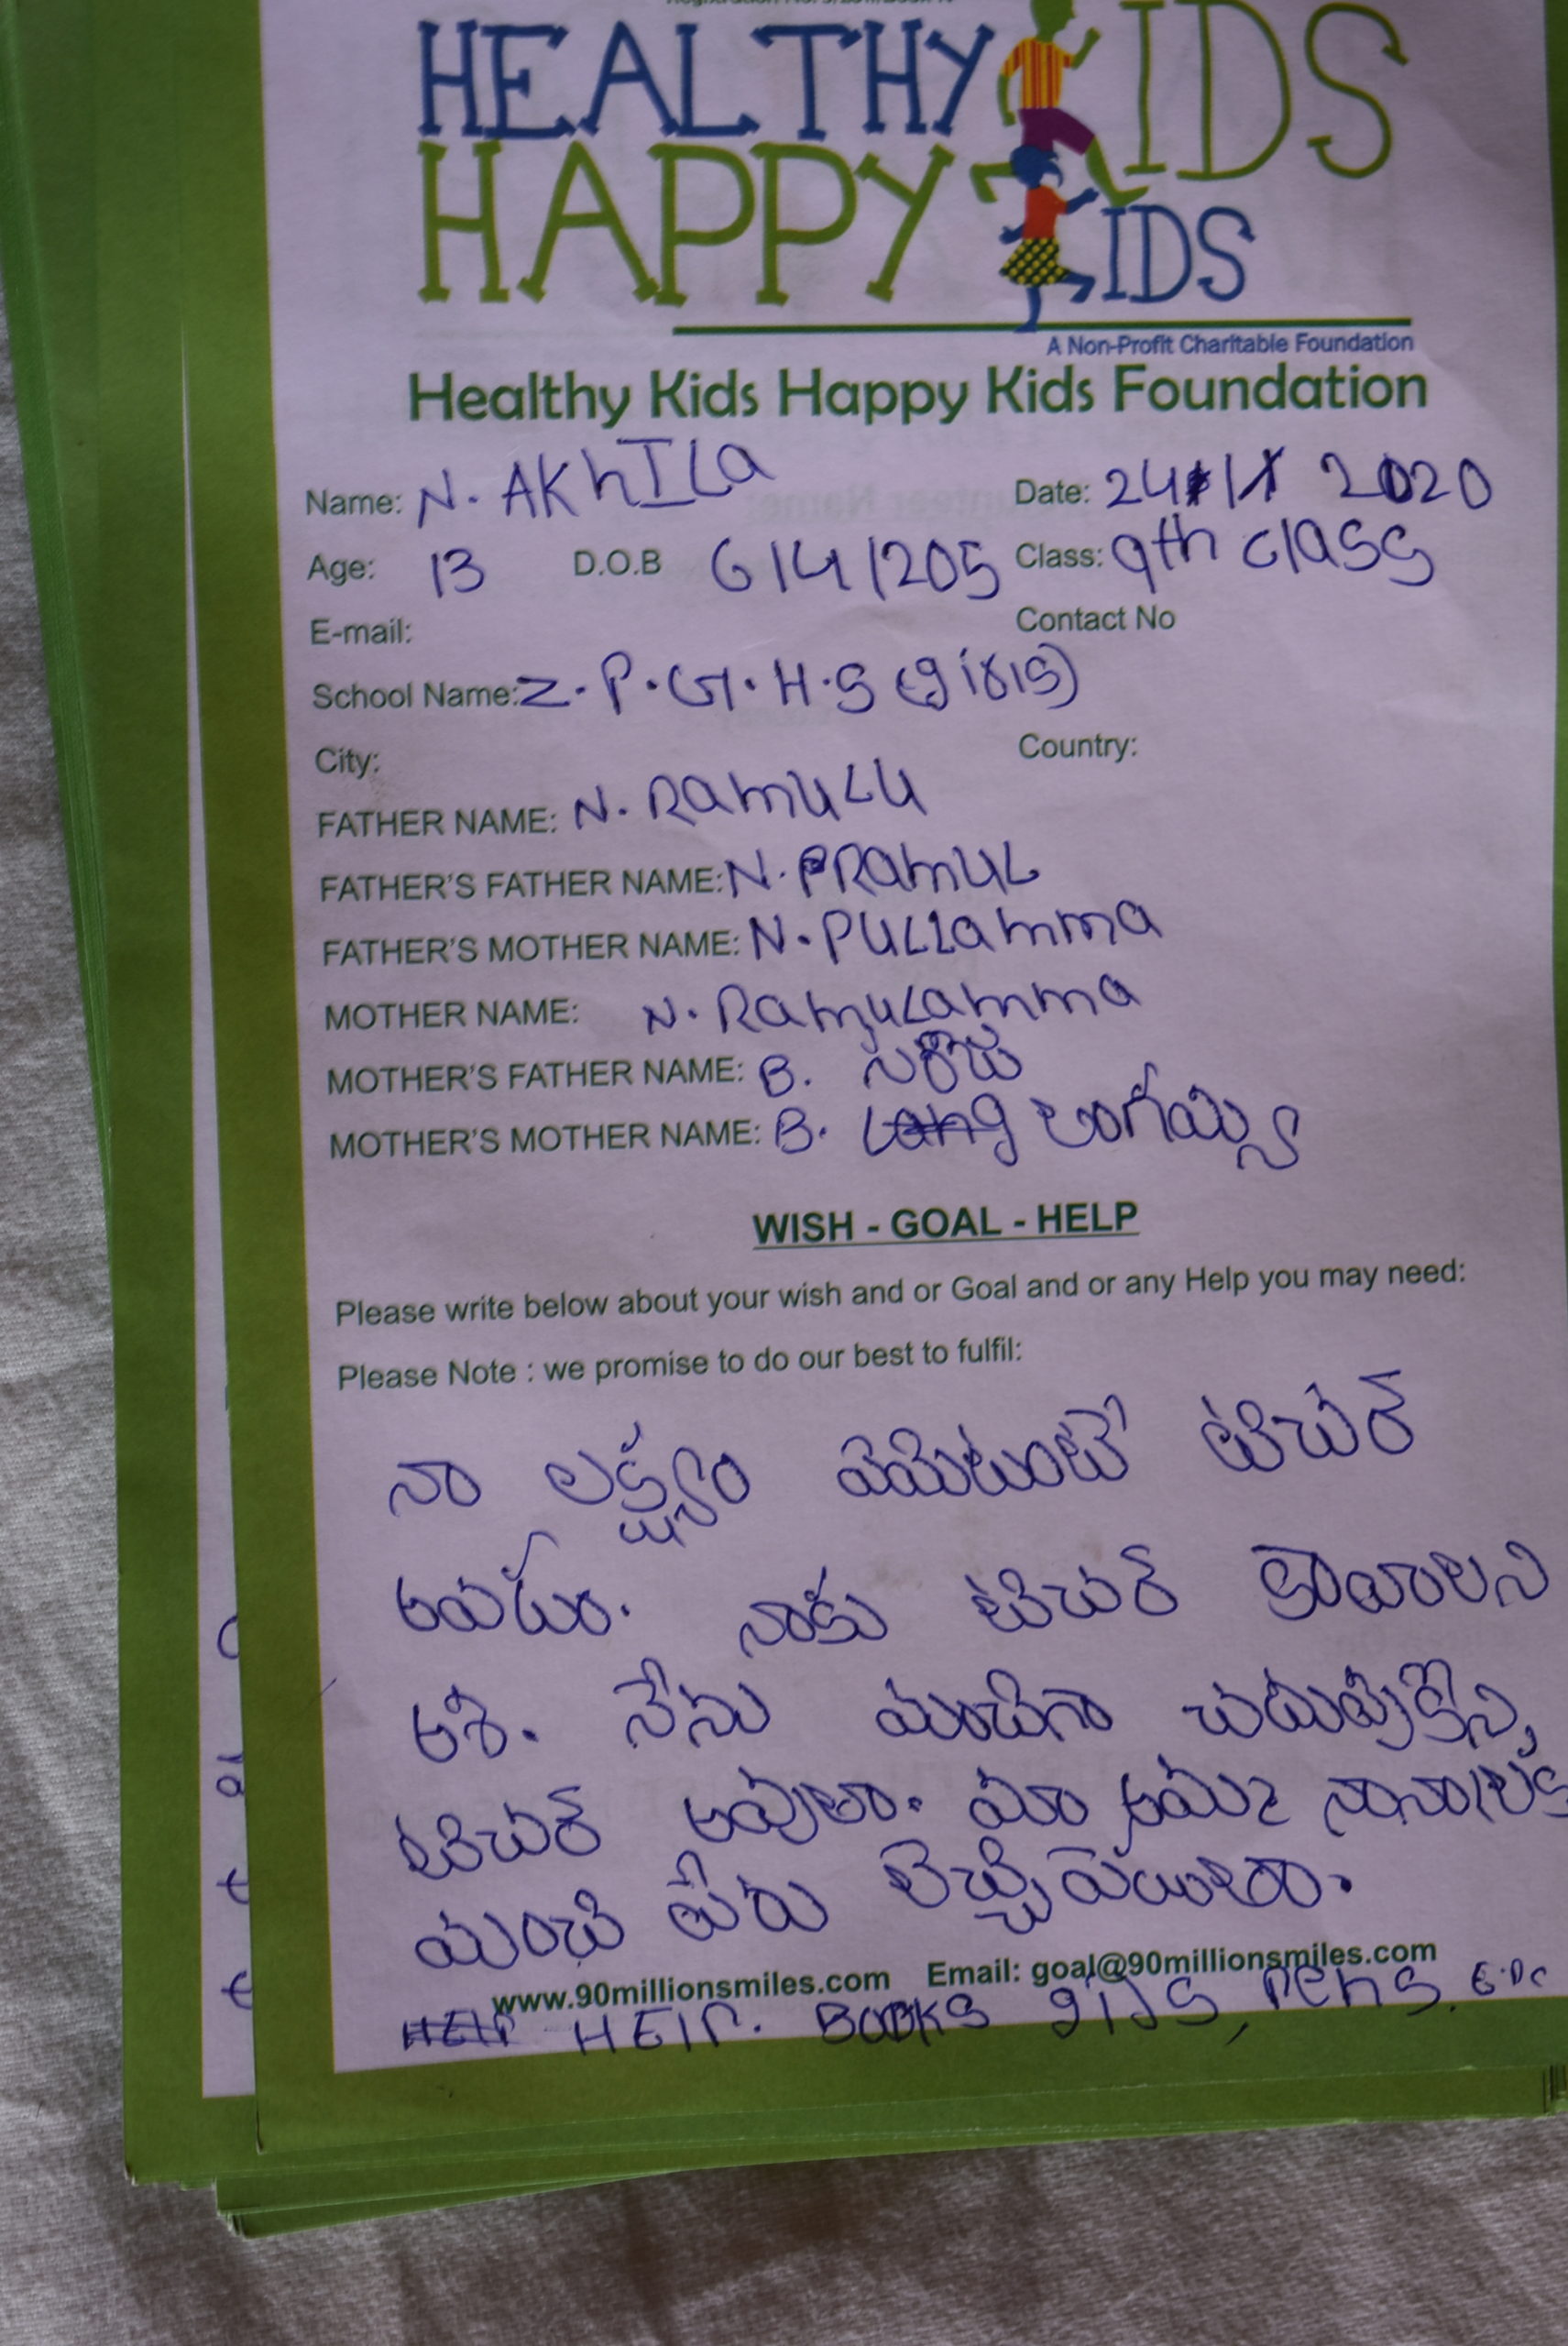 HEALTHY KIDS
HAPPY KIDS
A Non-Profit Charitable Foundation
Healthy Kids Happy Kids Foundation
Name: N. AKhILa Date: 24 2020
Age: 13 D.O.B 6/4/205 Class: 9th class
E-mail: Contact No
School Name: Z.P.G.H.S (girls)
City: Country:
FATHER NAME: N. RamuLu
FATHER'S FATHER NAME: N. PRamUL
FATHER'S MOTHER NAME: N. PULLamma
MOTHER NAME: N. RamuLamma
MOTHER'S FATHER NAME: B.
MOTHER'S MOTHER NAME: B.
WISH - GOAL - HELP
Please write below about your wish and or Goal and or any Help you may need:
Please Note : we promise to do our best to fulfil:
నా లక్ష్యం ఏమిటంటే టిచర్
అవడం. నాకు టిచర్ కావాలని
ఆశ. నేను మంచిగా చదువుకొని,
టిచర్ అవుతా. మా అమ్మ
మంచి పేరు
www.90millionsmiles.com Email: goal@90millionsmiles.com
HElP. BOOKS Pens.